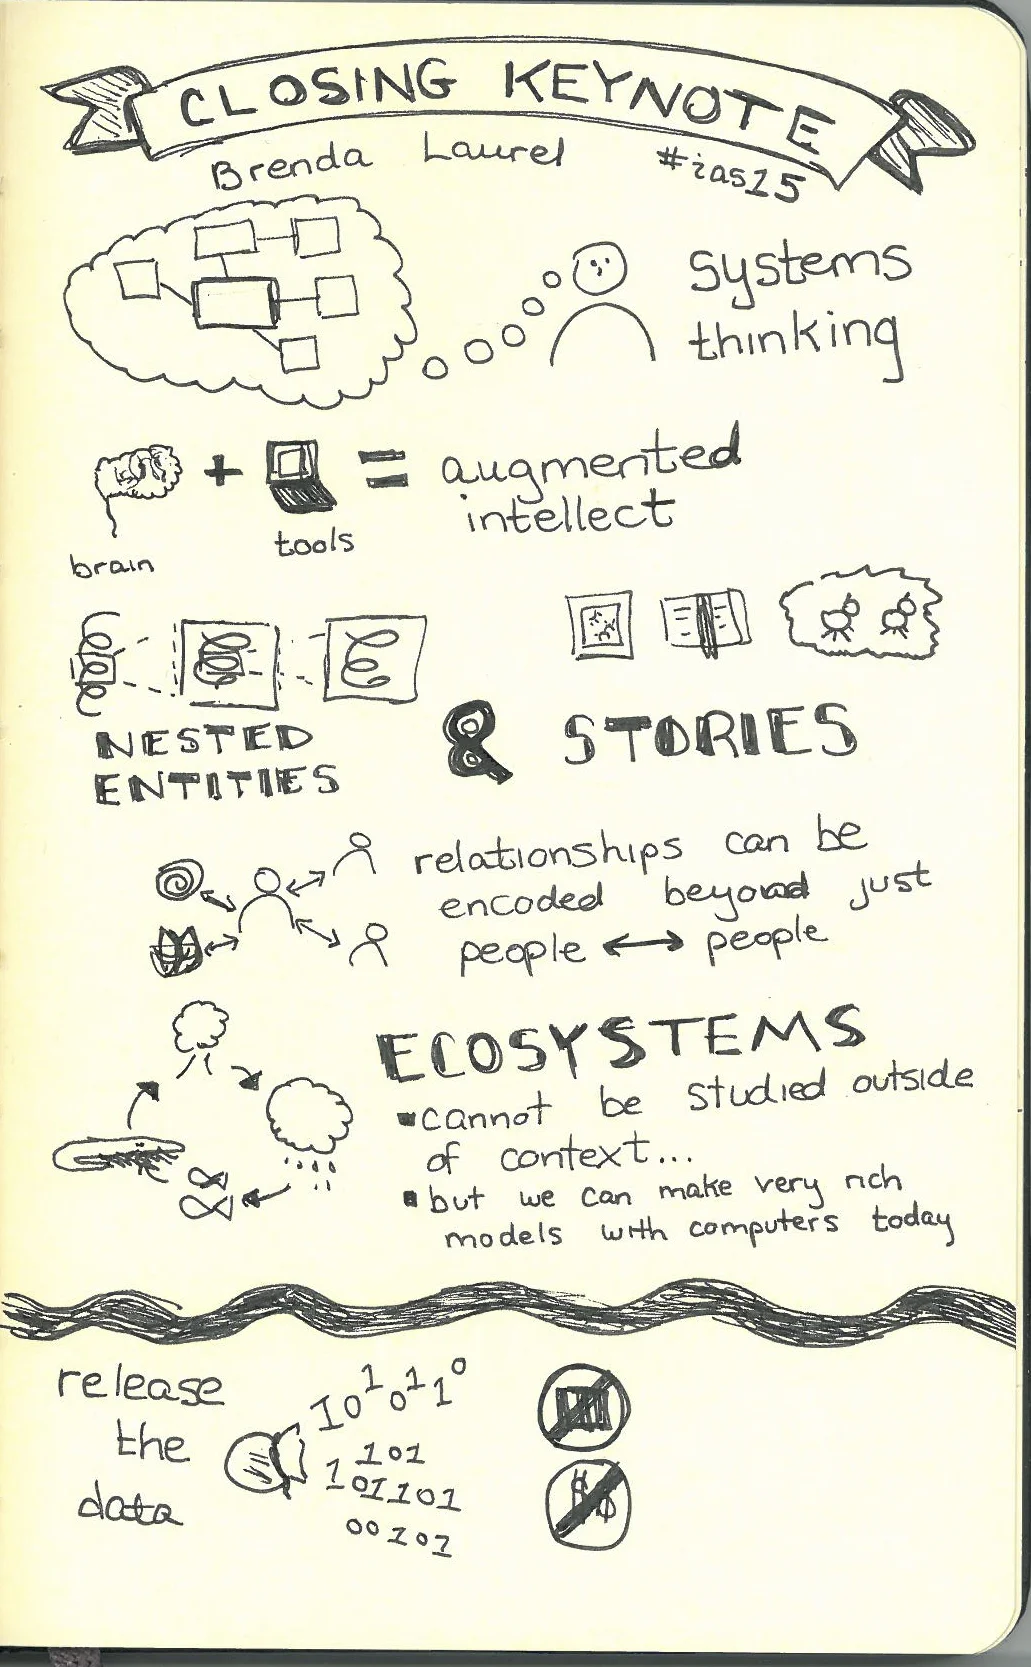 CLOSING KEYNOTE
Brenda Laurel #ias15
systems
thinking
+ = augmented
intellect
brain
tools
NESTED
ENTITIES
& STORIES
relationships can be
encoded beyond just
people ↔ people
ECOSYSTEMS
▪ cannot be studied outside
of context...
▪ but we can make very rich
models with computers today
release
the
data
1010110
101
101101
00101
$$